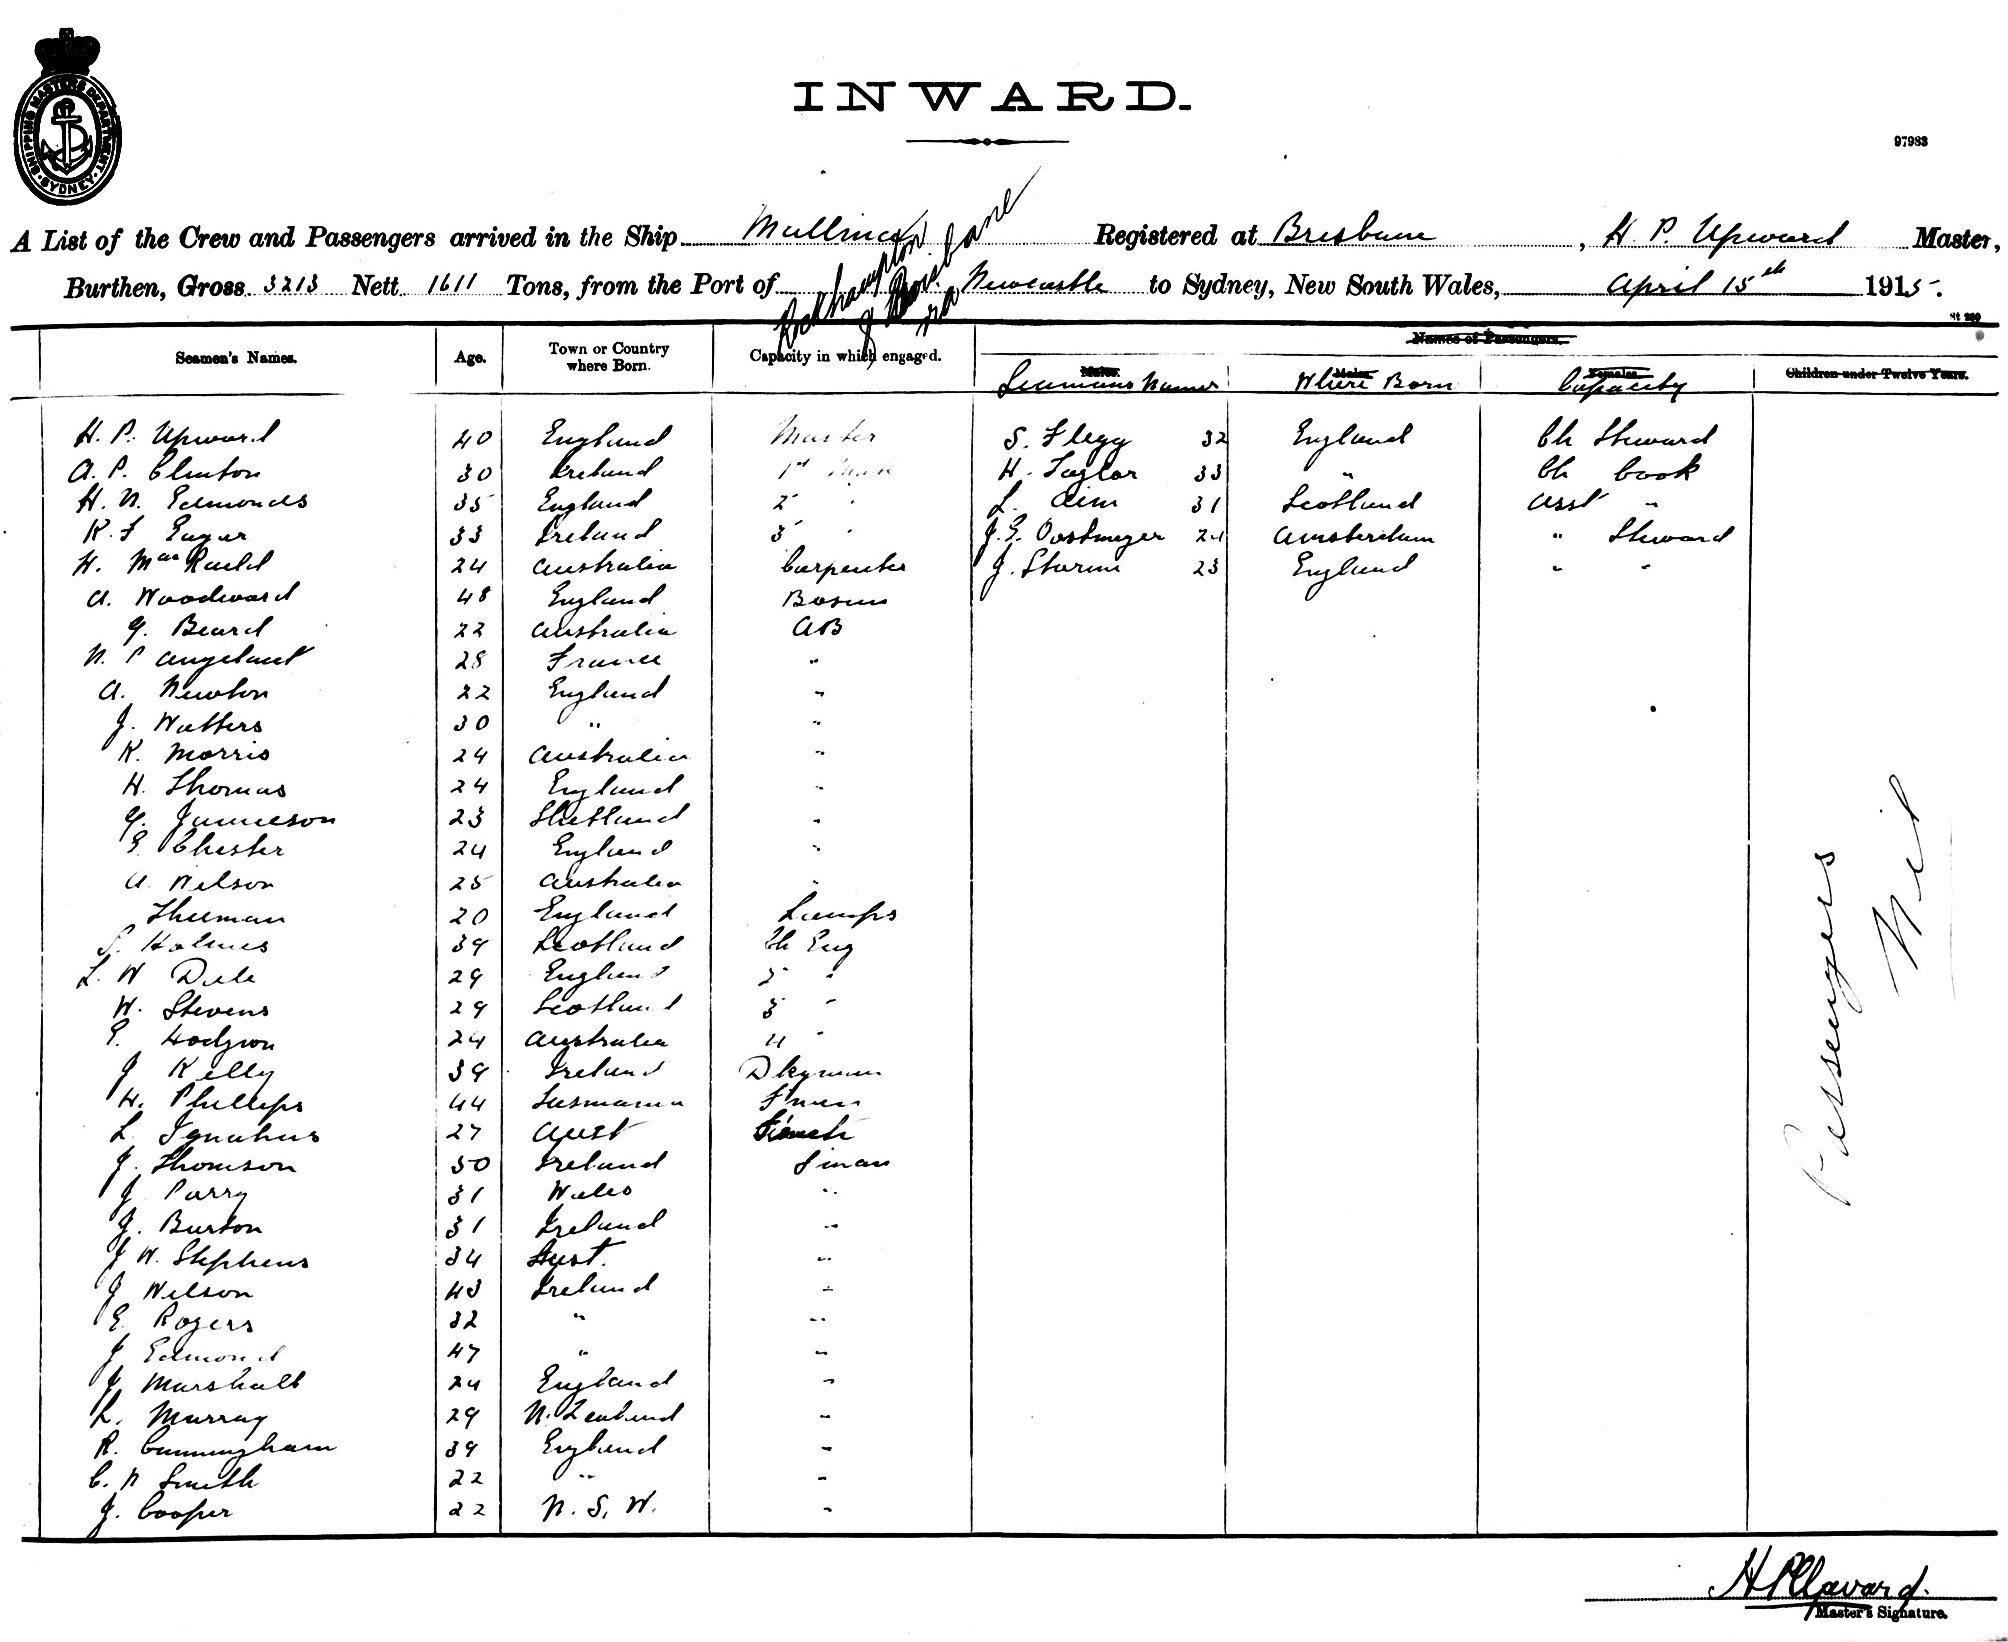 SHIPPING MASTERS DEPARTMENT
SYDNEY
INWARD.
97983
A List of the Crew and Passengers arrived in the Ship Registered at Brisbane, H. P. Upward Master,
Burthen, Gross 3213 Nett 1611 Tons, from the Port of Rockhampton & Brisbane via Newcastle to Sydney, New South Wales, April 15th 1915.
Seamen's Names. Age. Town or Country where Born. Capacity in which engaged. Names of Passengers.
Males. Males. Females. Children under Twelve Years.
Seamans Names Where Born Capacity
H. P. Upward 40 England Master S. Flegg 32 England Ch Steward
A. P. Clinton 30 Ireland 1st Mate H. Taylor 33 " Ch Cook
H. N. Edmonds 35 England 2 " L. Aim 31 Scotland Asst "
K. F 33 Ireland 3 " J. G. Oostmeyer 24 Amsterdam " Steward
H. 24 Australia Carpenter J. Storm 23 England " "
A. Woodward 48 England Bosun
G. Beard 22 Australia AB
N. P 28 France "
A. Newton 22 England "
J. Watters 30 " "
K. Morris 24 Australia "
H. Thomas 24 England "
G. Jamieson 23 Shetland "
E. Chester 24 England "
A. Wilson 25 Australia "
20 England Lamps
S. Holmes 39 Scotland Ch Eng
L. W Dale 29 England 2 "
W. Stevens 29 Scotland 3 "
E. Hodgson 24 Australia 4 "
J Kelly 39 Ireland Dkyman
H. Phillips 44 Tasmania F'man
L. Ignatius 27 Aust
J. Thomson 50 Ireland F'man
J Parry 31 Wales "
J. Burton 31 Ireland "
J W. Stephens 34 Aust. "
J Wilson 43 Ireland "
E. Rogers 32 " "
J Edmond 47 " "
J Marshall 24 England "
L. Murray 29 N. Zealand "
R. Cunningham 39 England "
C. N Smith 22 " "
J. Cooper 22 N. S. W. "
Passengers
Nil
H P Upward.
Master's Signature.